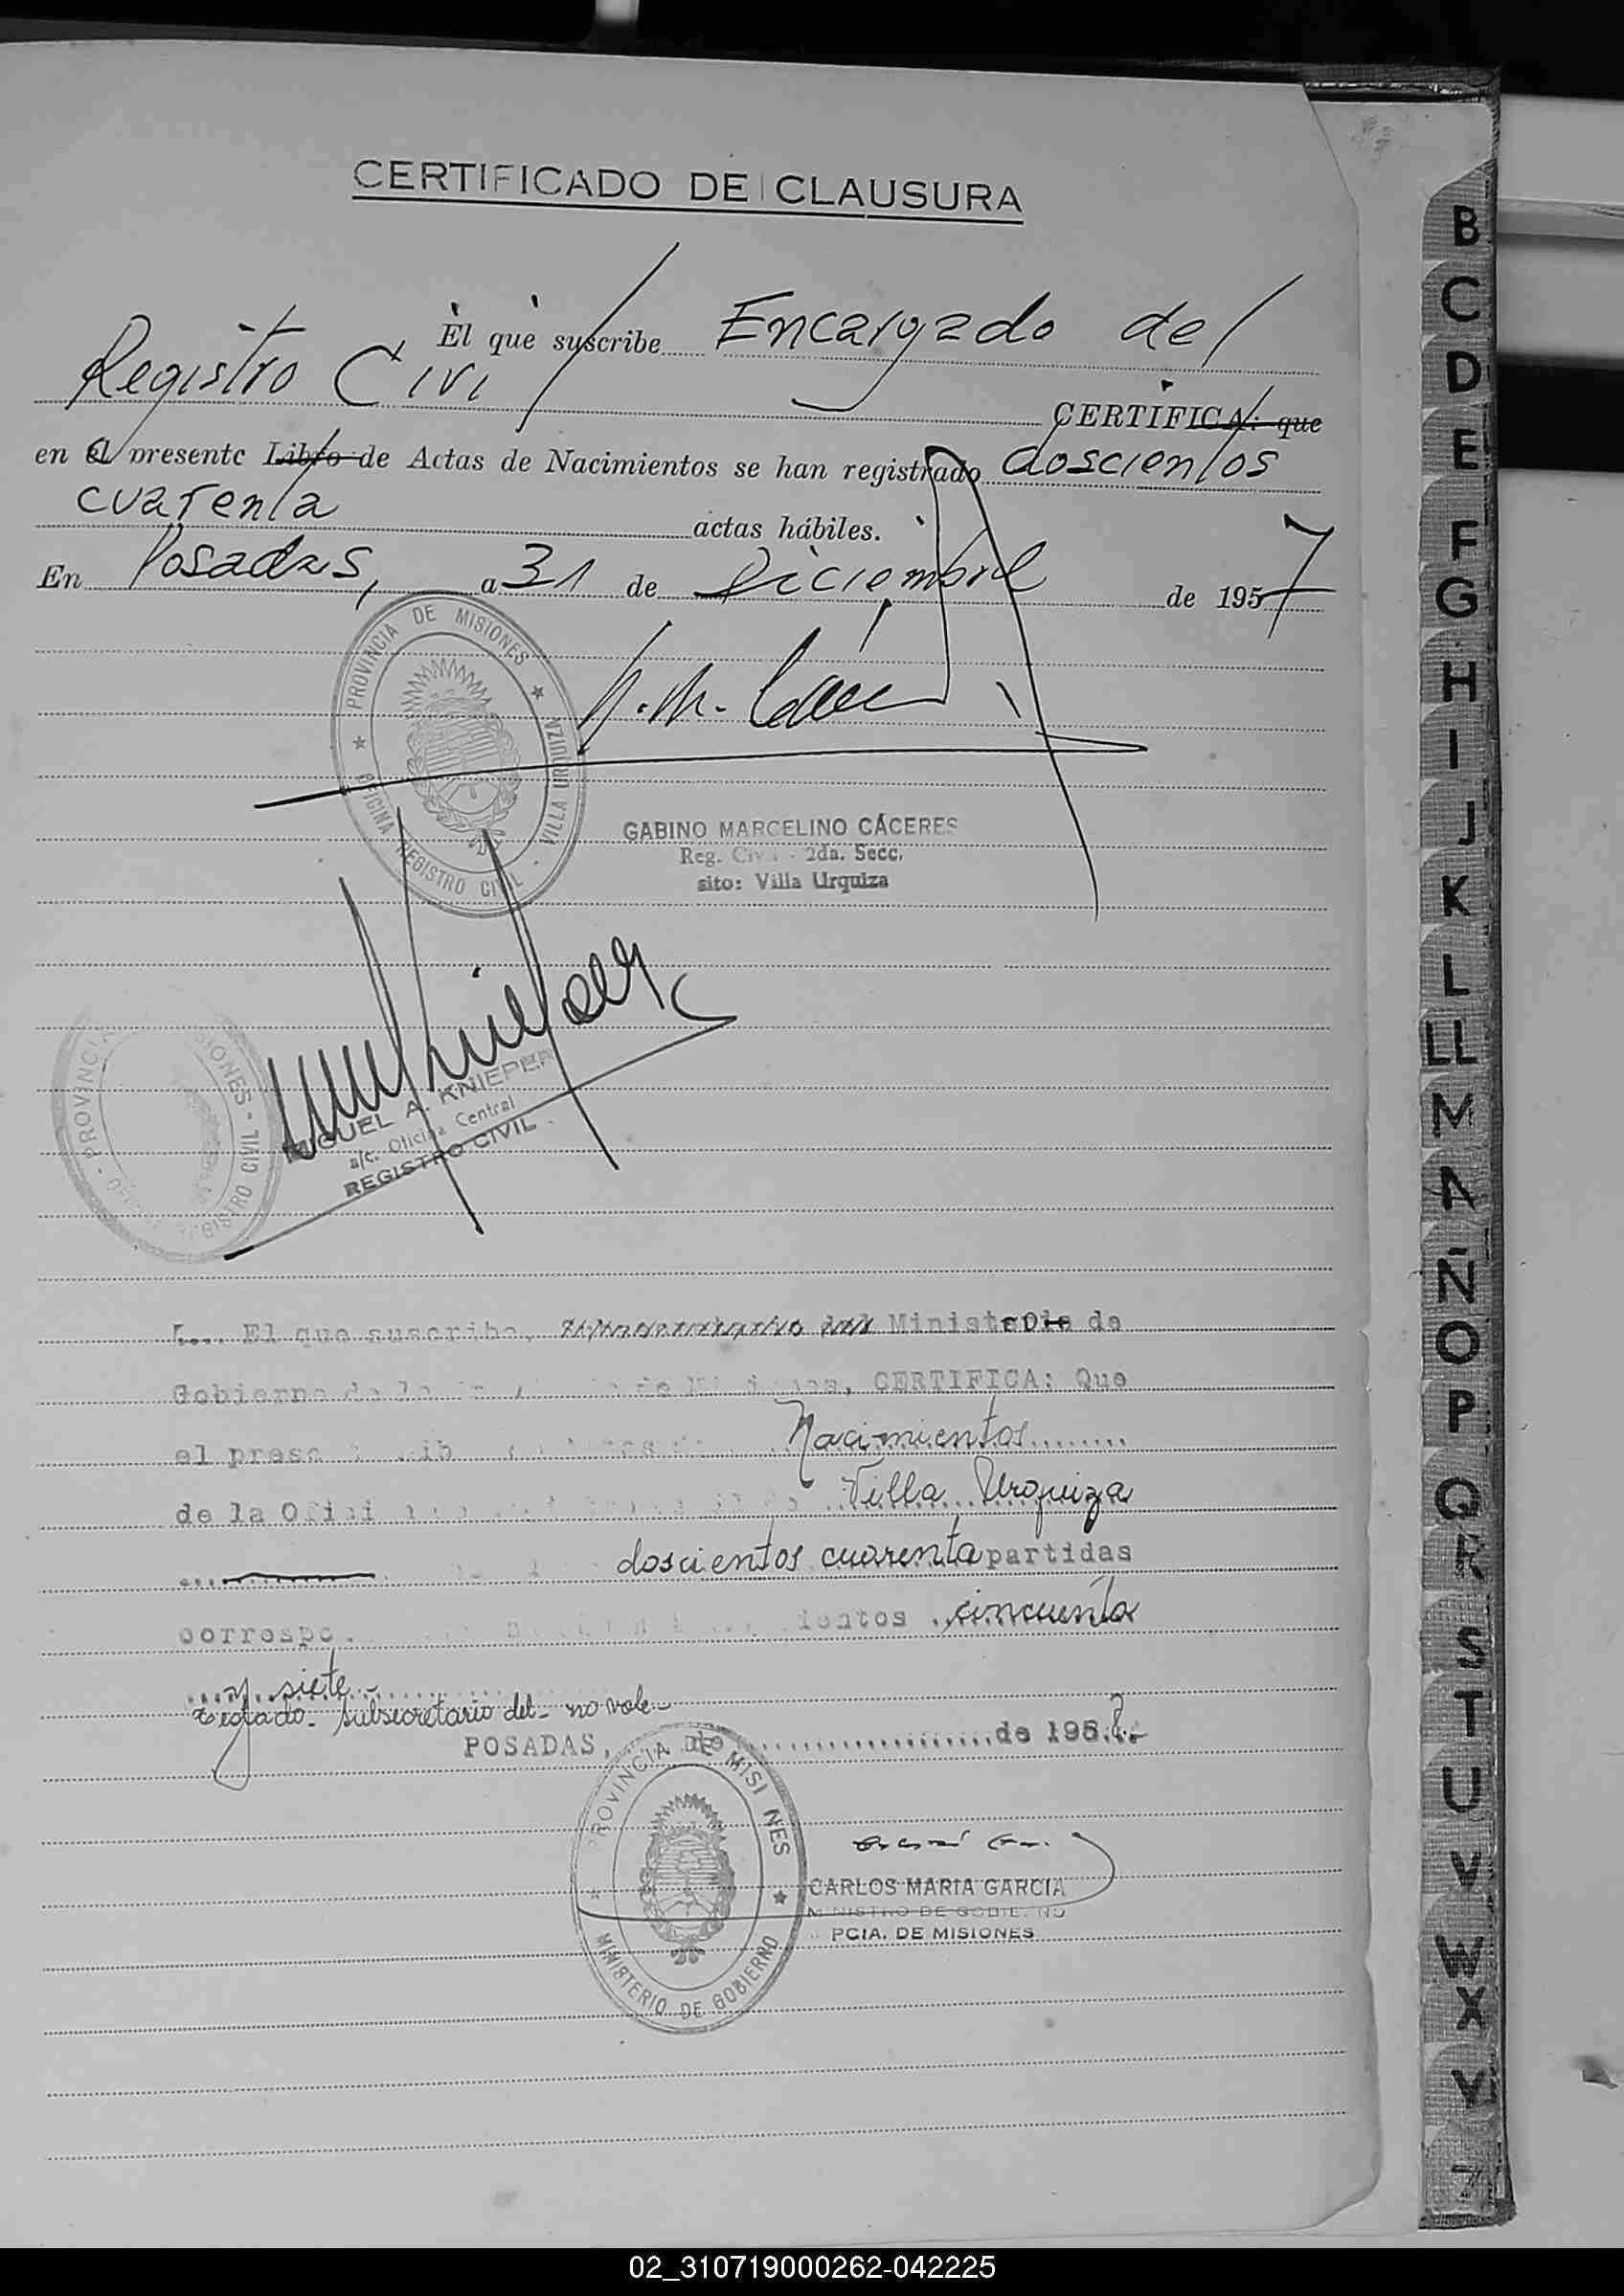 CERTIFICADO DE CLAUSURA
El que suscribe Encargado del
Registro Civil
CERTIFICA: que
en el presente Libro de Actas de Nacimientos se han registrado doscientos
cuarenta actas hábiles.
En Posadas, a 31 de Diciembre de 1957
PROVINCIA DE MISIONES
OFICINA REGISTRO CIVIL - VILLA URQUIZA
GABINO MARCELINO CÁCERES
Reg. Civil - 2da. Secc.
sito: Villa Urquiza
MIGUEL A. KNIEPER
a/c. Oficina Central
REGISTRO CIVIL
PROVINCIA MISIONES - REGISTRO CIVIL
El que suscribe, Ministerio de
Gobierno de la de Misiones, CERTIFICA: Que
el presente Nacimientos
de la Villa Urquiza
doscientos cuarenta partidas
cincuenta
y siete
Testado - subsecretario del - no vale -
POSADAS, de de 1958.-
PROVINCIA DE MISIONES
MINISTERIO DE GOBIERNO
CARLOS MARIA GARCIA
MINISTRO DE GOBIERNO
PCIA. DE MISIONES
B
C
D
E
F
G
H
I
J
K
L
LL
M
N
Ñ
O
P
Q
R
S
T
U
V
W
X
Y
Z
02_310719000262-042225